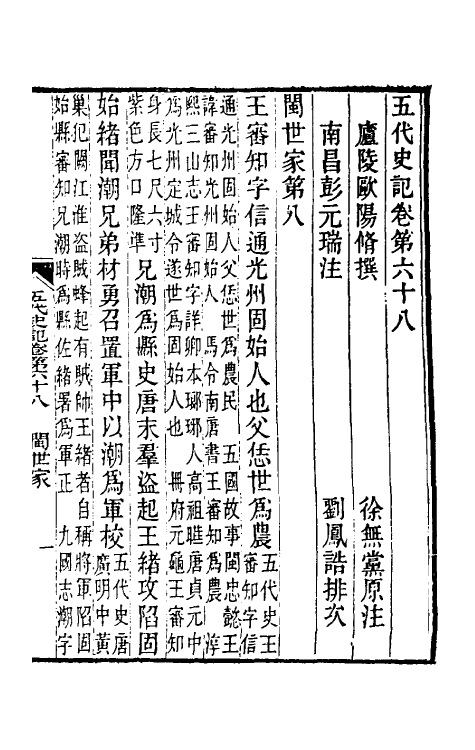 五代史記卷第六十八
廬陵歐陽脩撰　徐無黨原注
南昌彭元瑞注　劉鳳誥排次
閩世家第八
王審知字信通光州固始人也父恁世爲農五代史王
審知字信
通光州固始人父恁世爲農民　五國故事閩忠懿王
諱審知光州固始人　馬令南唐書王審知爲農　淳
熙三山志王審知字詳卿本瑯琊人高祖曄唐貞元中
爲光州定城令遂世爲固始人也　冊府元龜王審知
身長七尺六寸
紫色方口隆準
兄潮爲縣史唐末羣盜起王緒攻陷固
始緒聞潮兄弟材勇召置軍中以潮爲軍校五代史唐
廣明中黃
巢犯闕江淮盜賊蜂起有賊帥王緒者自稱將軍陷固
始縣審知兄潮時爲縣佐緒署爲軍正　九國志潮字
五代史記卷第六十八　閩世家　一